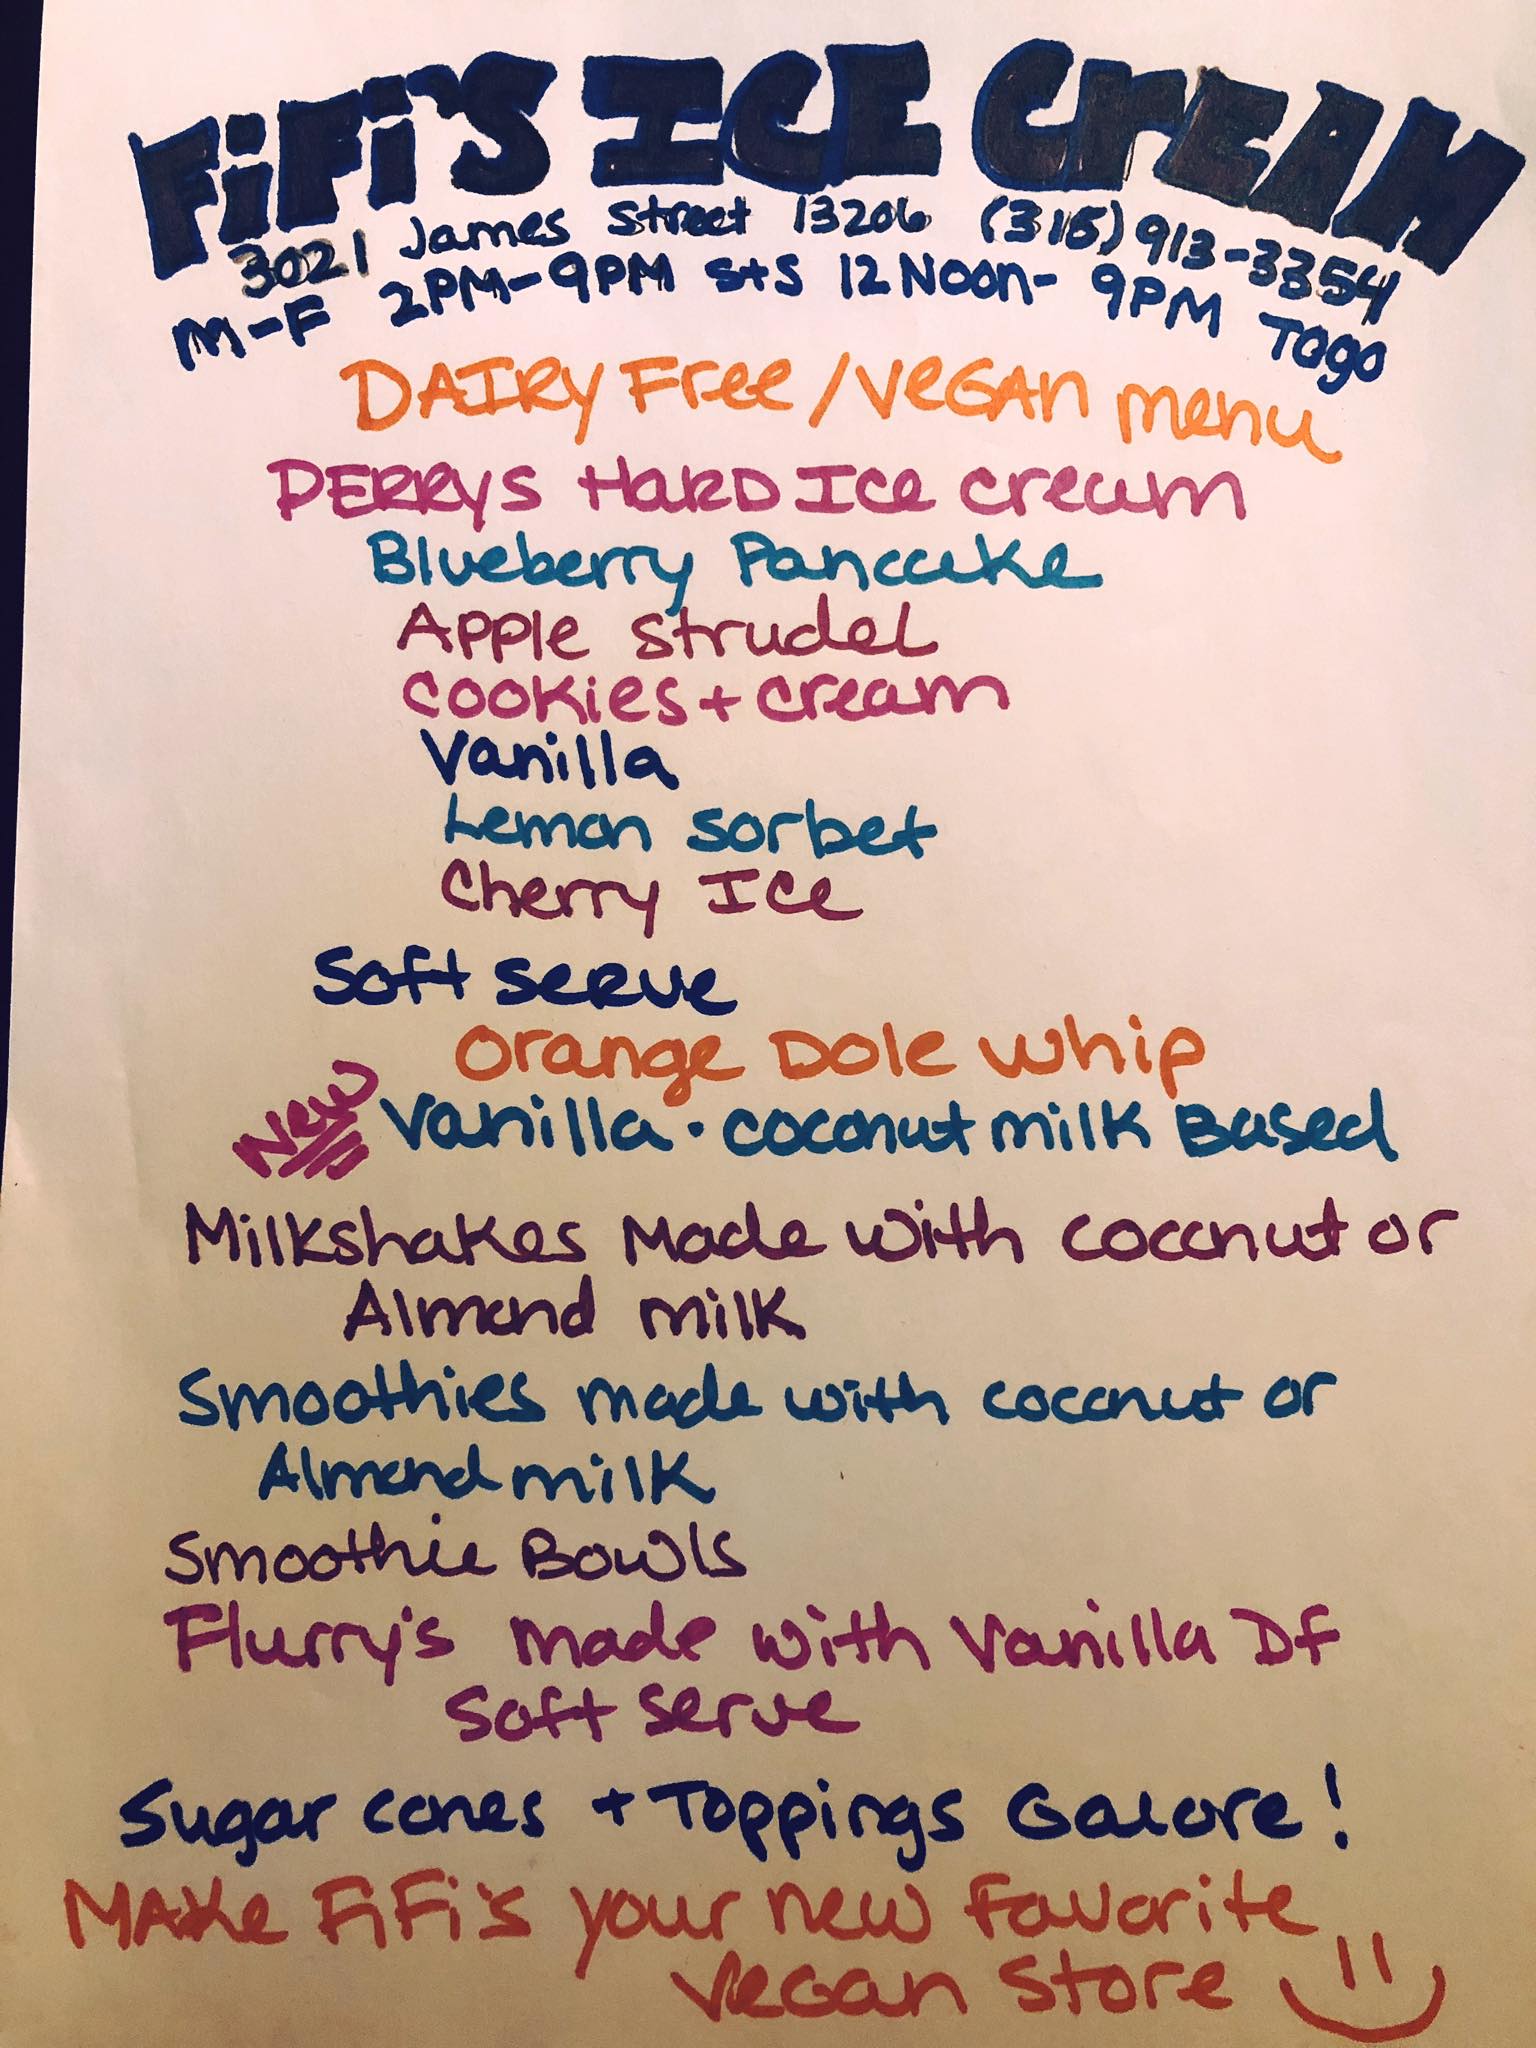 FiFi's ICE CrEAM
3021 James Street 13206 (315) 913-3354
M-F 2PM-9PM S+S 12 Noon- 9PM Togo
DAIRy Free/VeGAN menu
PERRYS HARD ICe cream
Blueberry Pancake
Apple strudel
Cookies + cream
Vanilla
Lemon sorbet
Cherry ICe
Soft serve
Orange Dole whip
New Vanilla · coconut milk Based
Milkshakes Made with coconut or
Almond milk
Smoothies made with coconut or
Almond milk
Smoothie Bowls
Flurry's made with Vanilla DF
soft serve
Sugar cones + Toppings Galore!
MAKe FiFi's your new favorite
vegan store